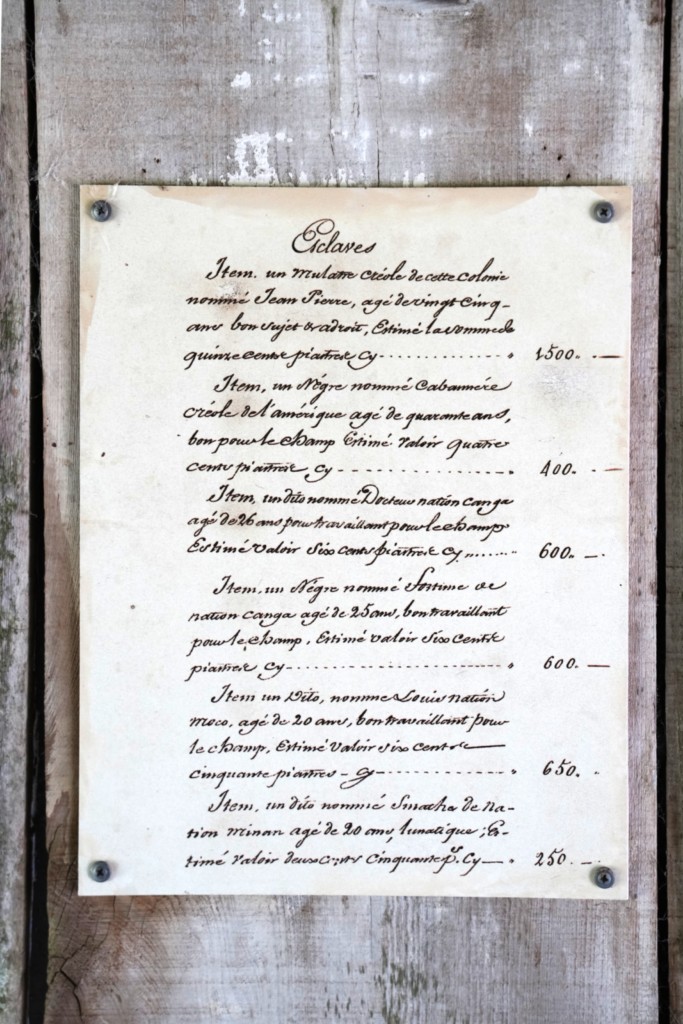 Esclaves
Item. un mulatre créole de cette colonie
nommé Jean Pierre, agé de vingt cinq-
ans bon sujet & adroit, Estimé la somme de
quinze cents piastres Cy - - - - - - - - - - - - - - - " 1500. -
Item, un Négre nommé Cabannére
créole de l'amérique agé de quarante ans,
bon pour le champ Estimé valoir quatre
cents piastres, cy - - - - - - - - - - - - - - - - - " 400. -
Item, un dito nommé Docteur nation Canga
agé de 26 ans, pour travaillant pour le champ
Estimé valoir six cents piastres cy ........ 600. -
Item, un Négre nommé de
nation canga agé de 25 ans, bon travaillant
pour le champ, Estimé valoir six cents
piastres Cy - - - - - - - - - - - - - - - - - - - - - " 600. -
Item un Dito, nommé Louis nation
moco, agé de 20 ans, bon travaillant pour
le champ, Estimé valoir six cent
cinquante piastres - Cy - - - - - - - - - - - - - " 650. -
Item, un dito nommé de na-
tion minan agé de 20 ans, lunatique ; Es-
timé valoir deux cents cinquante p.r Cy — " 250. -